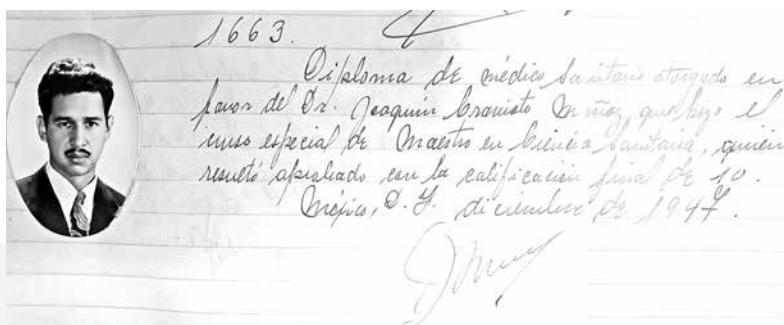 1663.
Diploma de médico Sanitario otorgado en
favor del Dr. Joaquín Cravioto Muñoz, que hizo el
curso especial de Maestro en Ciencia Sanitaria, quien
resultó aprobado con la calificación final de 10.
México, D. F. diciembre de 1947.